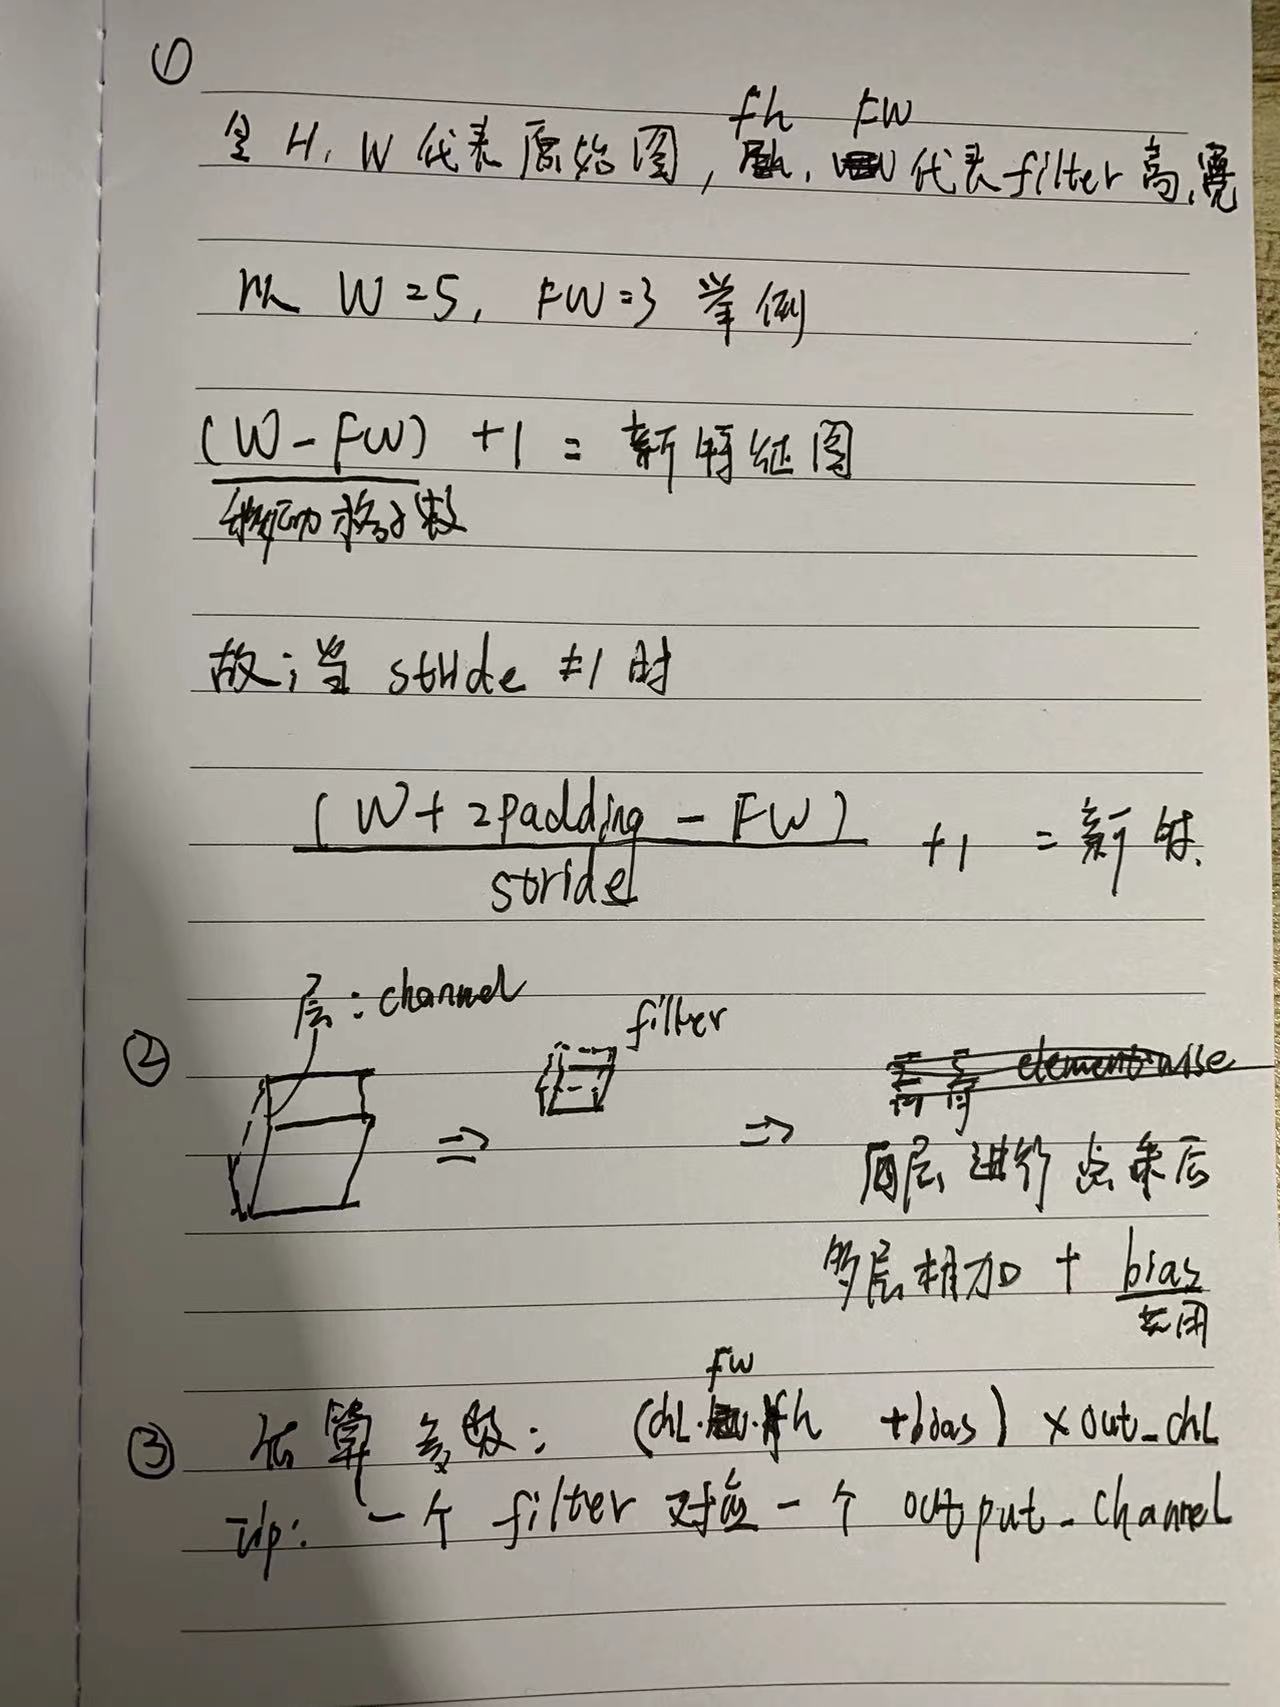 ①
全 H, W 代表原始图, fh, FW 代表filter高,宽
以 W=5, FW=3 举例
(W-FW) +1 = 新特征图
移动格子数
故;当 stride ≠1 时
(W+2padding-FW)
stride
+1 = 新特.
② 层:channel
filter
⇒ ⇒
同层进行点乘后
多层相加 + bias
共用
③ 估算参数: (chl·fw·fh +bias) × out_chl
Tip: 一个 filter 对应一个 output_channel